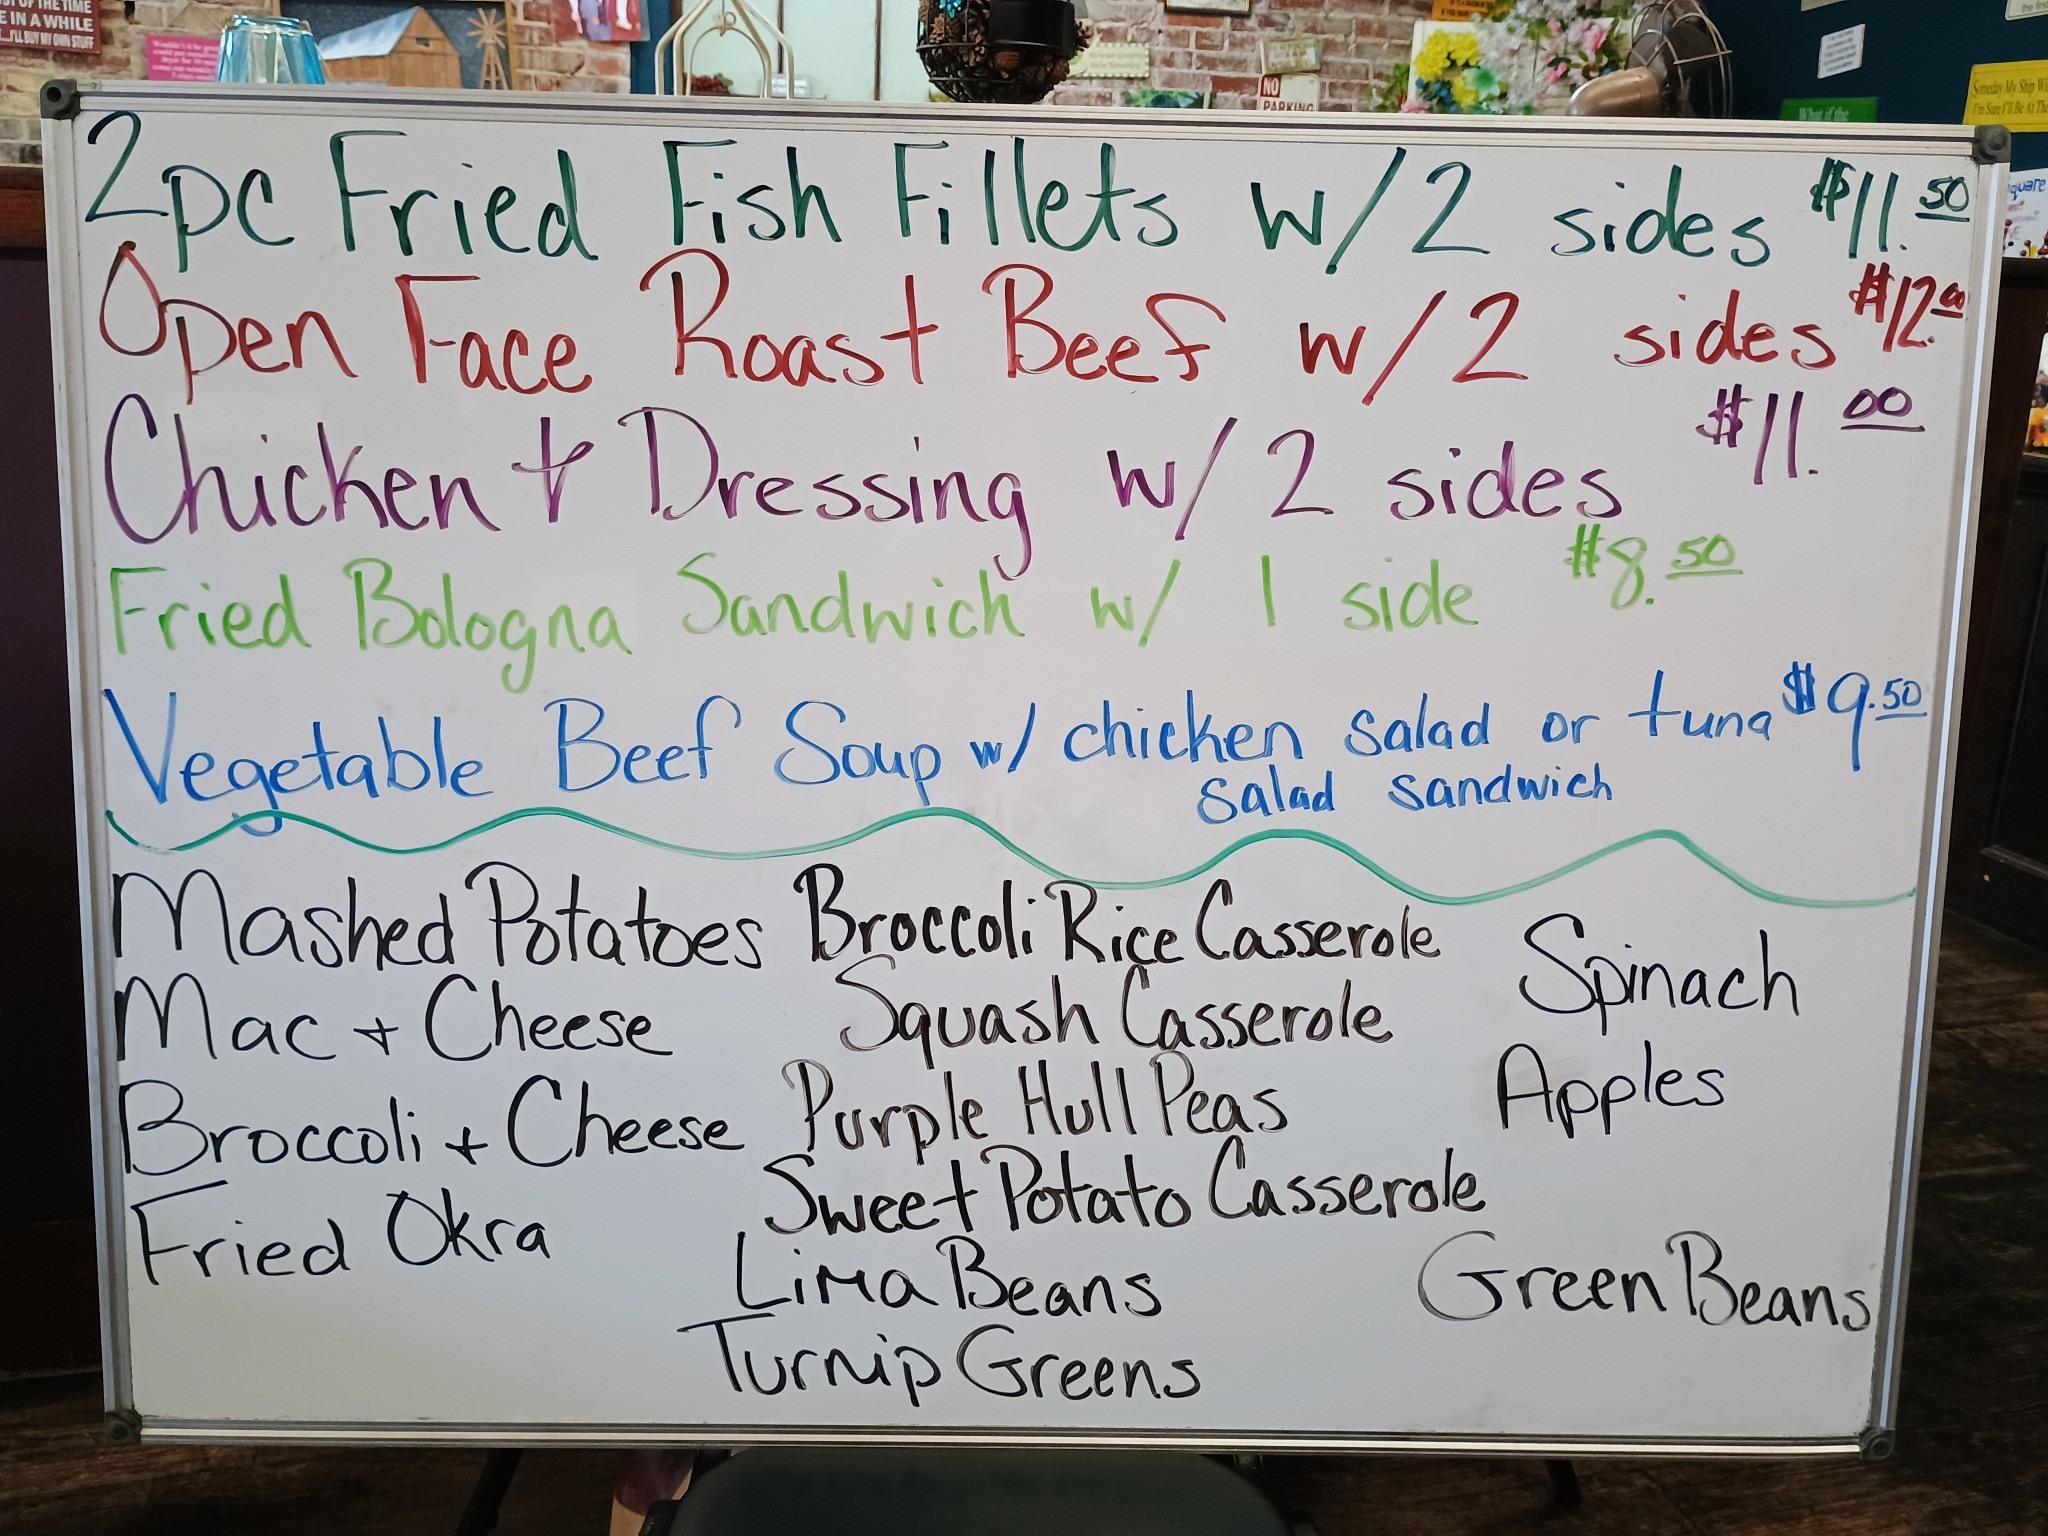 OF THE TIME
E IN A WHILE
I'LL BUY MY OWN STUFF
NO
PARKING
What if the
Someday My Ship Wi
I'm Sure I'll Be At The
quare
2pc Fried Fish Fillets w/2 sides $11.50
Open Face Roast Beef w/2 sides $12.00
Chicken + Dressing w/2 sides $11.00
Fried Bologna Sandwich w/ 1 side $8.50
Vegetable Beef Soup w/ chicken salad or tuna $9.50
salad sandwich
Mashed Potatoes
Mac + Cheese
Broccoli + Cheese
Fried Okra
Broccoli Rice Casserole
Squash Casserole
Purple Hull Peas
Sweet Potato Casserole
Lima Beans
Turnip Greens
Spinach
Apples
Green Beans